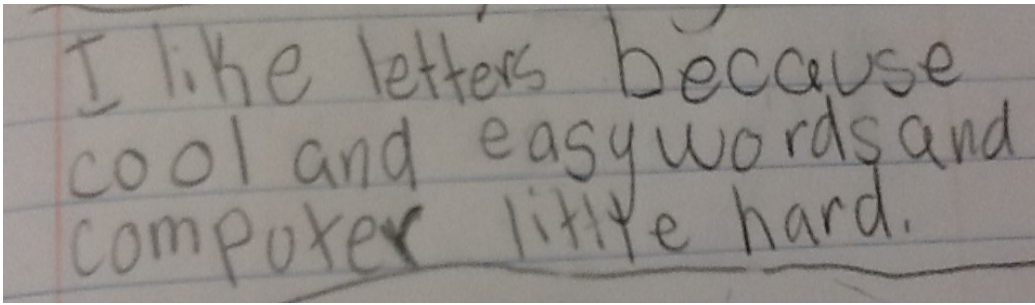 I like letters because
cool and easy words and
computer little hard.